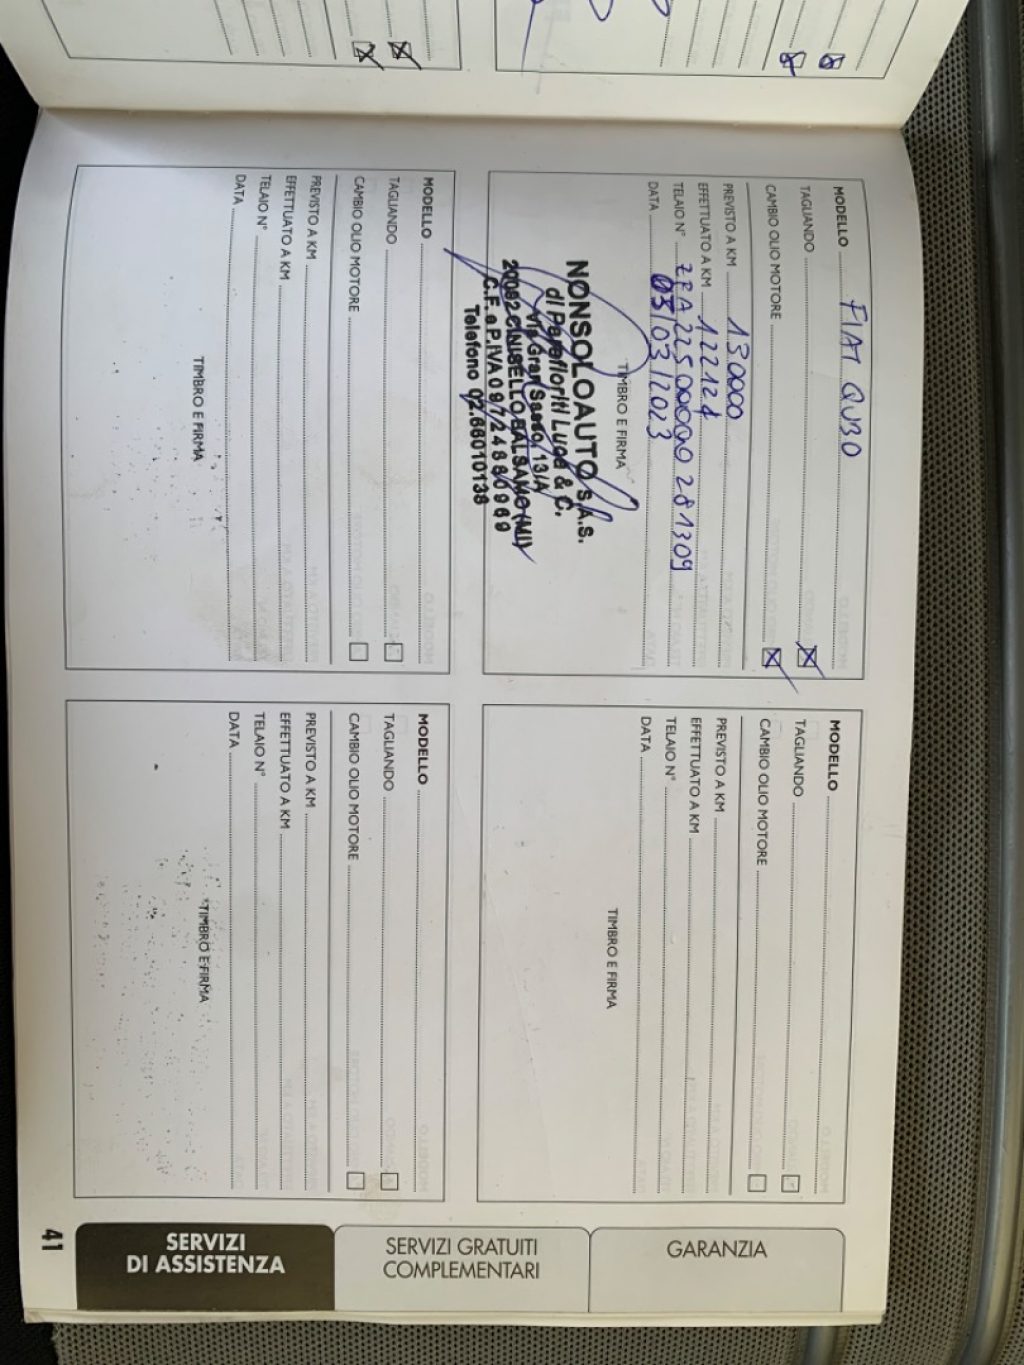 MODELLO FIAT QUBO
TAGLIANDO
CAMBIO OLIO MOTORE
PREVISTO A KM 130000
EFFETTUATO A KM 122121
TELAIO N° ZFA22500000281309
DATA 03/03/2023
TIMBRO E FIRMA
NONSOLOAUTO S.A.S.
di Panefioriti Luca & C.
Via Gran Sasso, 13/A
20092 CINISELLO BALSAMO (MI)
C.F. e P.IVA 09724880969
Telefono 02.66010138
MODELLO
TAGLIANDO
CAMBIO OLIO MOTORE
PREVISTO A KM
EFFETTUATO A KM
TELAIO N°
DATA
TIMBRO E FIRMA
MODELLO
TAGLIANDO
CAMBIO OLIO MOTORE
PREVISTO A KM
EFFETTUATO A KM
TELAIO N°
DATA
TIMBRO E FIRMA
MODELLO
TAGLIANDO
CAMBIO OLIO MOTORE
PREVISTO A KM
EFFETTUATO A KM
TELAIO N°
DATA
TIMBRO E FIRMA
GARANZIA
SERVIZI GRATUITI
COMPLEMENTARI
SERVIZI
DI ASSISTENZA
41